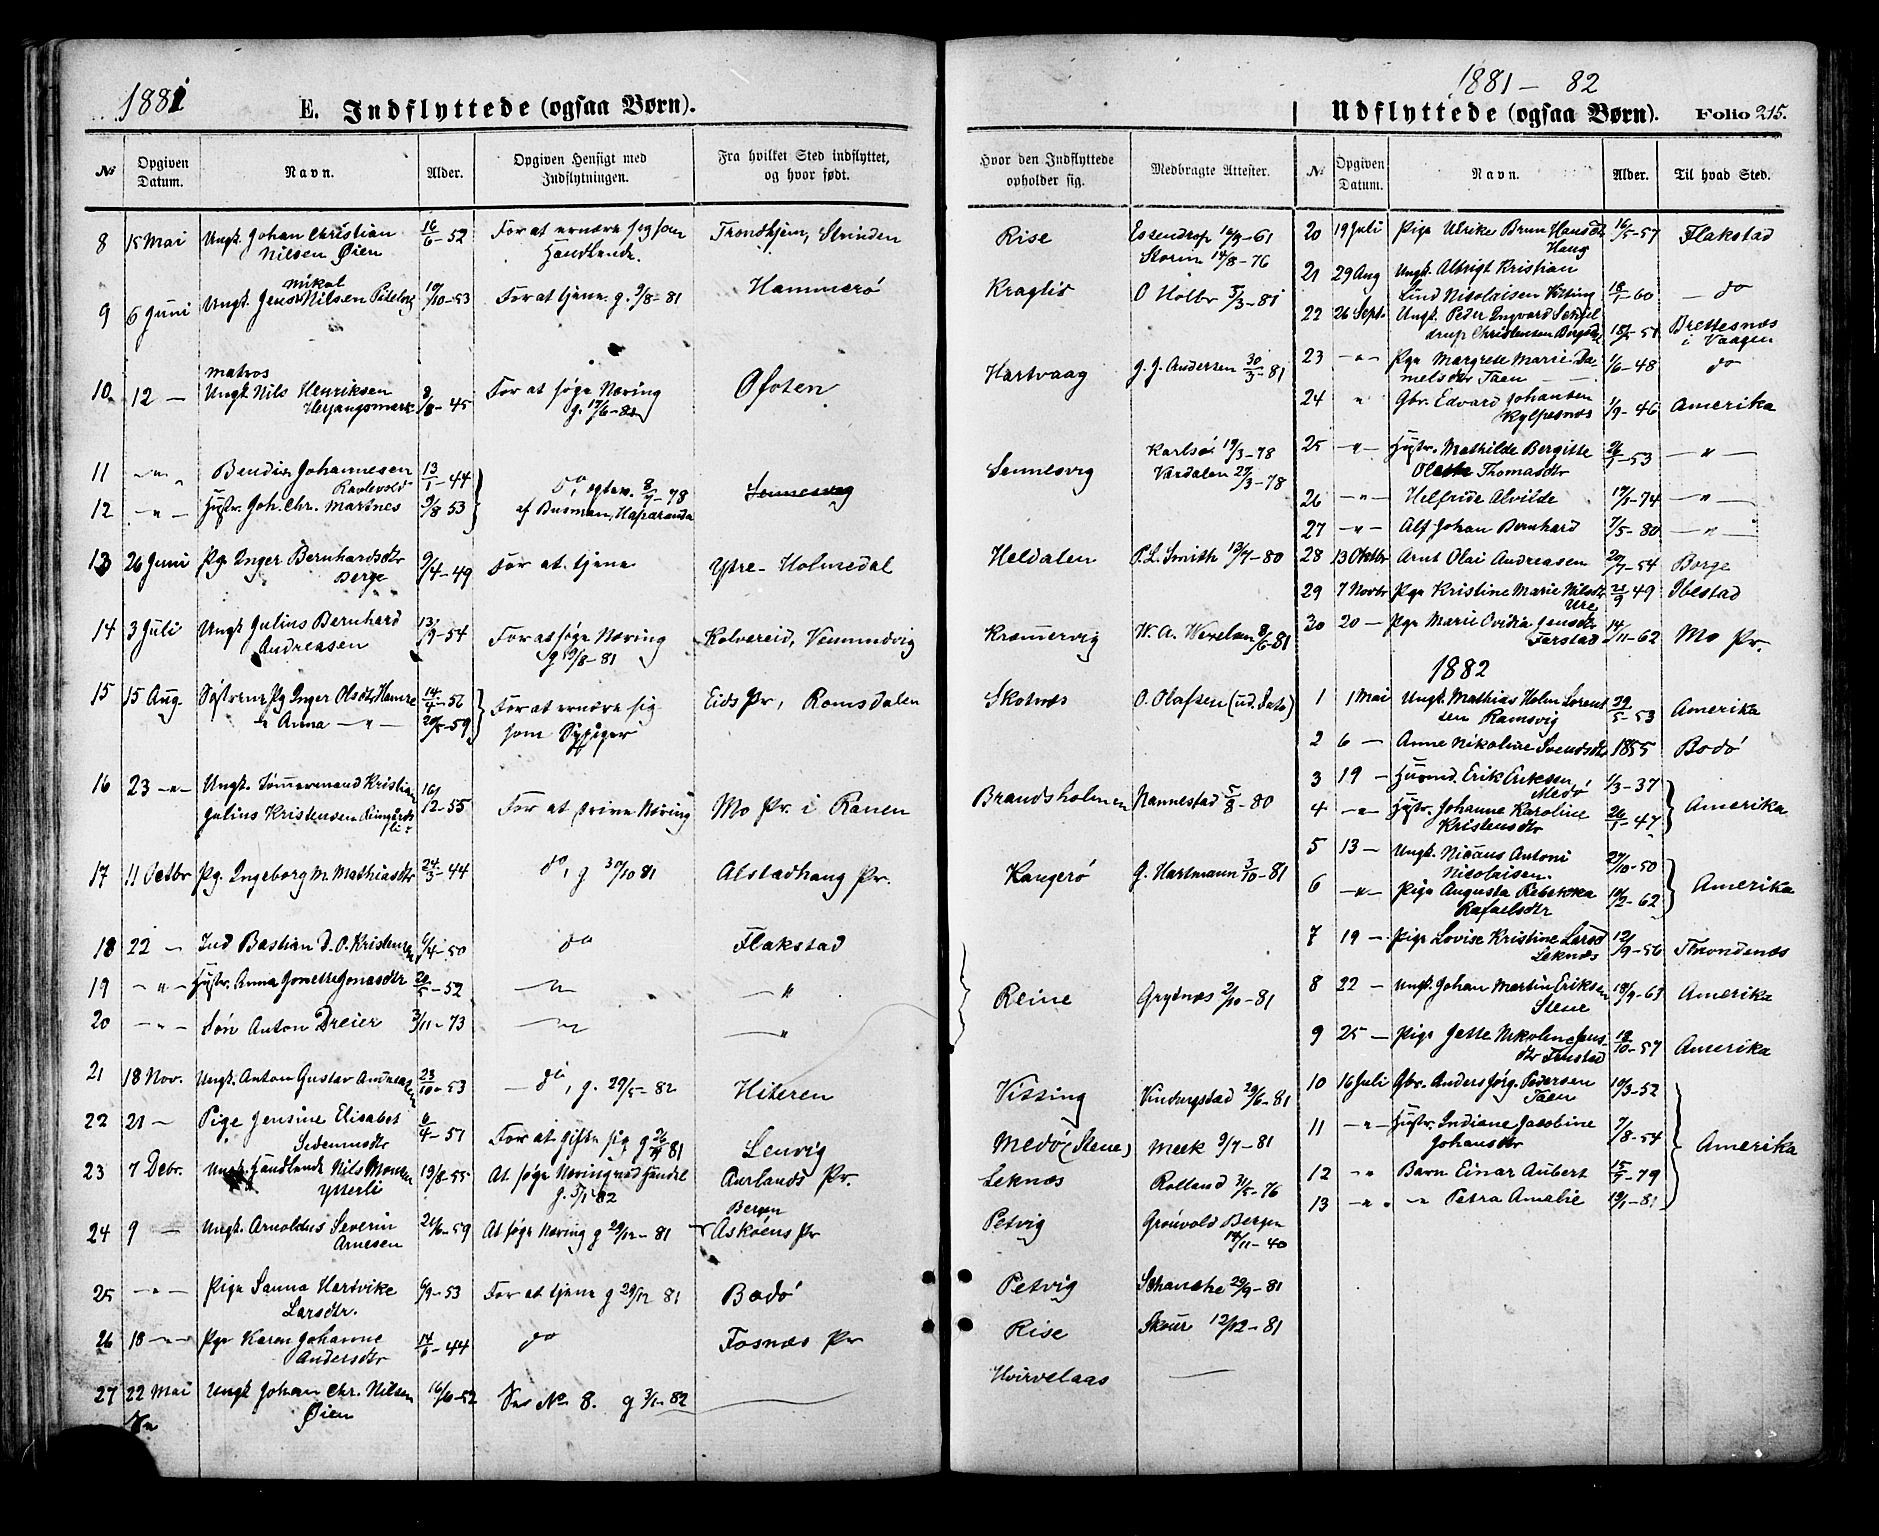 1881
E. Indflyttede (ogsaa Børn).
№ | Opgiven Datum. | Navn. | Alder. | Opgiven Hensigt med Indflytningen. | Fra hvilket Sted indflyttet, og hvor født.
8 | 15 Mai | Ungk. Johan Christian Nilsen Øien | 16/6-52 | For at ernære sig som Handlende. | Trondhjem, Strinden
9 | 6 Juni | Ungk. Jens Mikal Nilsen | 19/10-53 | For at tjene. g. 9/8-81 | Hammerø
10 | 12 — | Matros Ungk. Nils Henriksen Herjangsmark | 3/8-45 | For at søge Næring g. 17/6-82 | Ofoten
11 | —"— | Johannesen | 13/1-44 | Do,
12 | —"— | Hustr. Joh. Chr. Martnes | 9/8 53 | af Busman, Haparanda
13 | 26 Juni | Pg. Inger Bernhardsdtr Berge | 9/4-49 | For at tjene | Ytre-Holmedal
14 | 3 Juli | Ungk. Julius Bernhard Andreasen | 13/9-54 | For at søge Næring g 19/8-81 | Kolvereid, Vemundvig
15 | 15 Aug. | Søstrene Pg Inger Olsdtr Hamre | 14/4-56 | For at ernære sig som Sypiger | Eids Pr, Romsdalen
Anna —"— | 20/5-59
16 | 23 —"— | Ungk. Tømmermand Kristian Julius Kristensen | 16/12-55 | For at drive Næring | Mo Pr. i Ranen
17 | 11 Octbr | Pg. Ingeborg M. Mathiasdtr | 24/3-44 | do, g 30/10 81 | Alstadhaug Pr.
18 | 22 — | Ind Bastian D. O. Kristensen | 6/4-50 | do | Flakstad
19 | —"— | Hustr. Anna Jonette Jonasdtr | 20/5-52 | —"— | —"
20 | —"— | Søn Anton Dreier | 3/11-73 | —"— | —"
21 | 18 Nov. | Ungk. Anton Gustav Andreasen | 23/10-53 | — do, g. 29/5-82 | Hiteren
22 | 21 — | Pige Jensine Elisabet | 6/4-57 | For at gifte sig g 81 | Lenvig
23 | 7 Debr. | Ungk. Handlende Nils Monsen Ytterli | 19/8-55 | At søge Næring ved Handel g. 5/1 82 | Aurlands Pr.
24 | 9 — | Ungk. Arnoldus Severin Arnesen | 21/6-59 | At søge Næring g 29/12-81 | Bergen Askøens Pr
25 | —"— | Pige Sanna Hartvike Larsdtr. | 6/9-53 | For at tjene g 29/12 81 | Bodø
26 | 18 —"— | Pge Karen Johanne Andersdtr | 14/6-44 | do | Fosnæs Pr
27 | 22 Mai | Ungk Johan Chr. Nilsen Øien | 16/6-52 | Se No 8. g 3/1-82 | —
1881 — 82
Udflyttede (ogsaa Børn). Folio 215.
Hvor den Indflyttede opholder sig. | Medbragte Attester.
Rise | Essendrop 16/9-61 Storm 14/8-76
O Holbr 5/3-81
Hartvaag | J. J. Andersen 30/3-81
Sennesvig | Karlsø 19/3-78 Vardalen 27/3-78
Heldalen | P. L. Smith 13/7-80
Kræmervig | W. A. Wexelsen 8/6-81
Skotnæs | O. Olafsen (ud. Dato)
Brandsholmen | Nannestad 5/8-80
Kangerø | G. Hartmann 3/10-81
Reine | Grytnæs 2/10-81
Vitting | 29/6-81
Medø (Stene) | Meek 9/7-81
Leknæs | Rolland 31/5-76
Petvig | Grønvold Bergen 14/11-40
Petvig | Schanche 29/9-81
Rise | Skour 12/12-81
Hvirvelaas | —
№ | Opgiven Datum. | Navn. | Alder. | Til hvad Sted.
20 | 19 Juli | Pige Ulrike Brun Hansdtr Haug | 16/5-57 | Flakstad
21 | 29 Aug | Ungk. Albrigt Kristian Lind Nicolaisen | 18/1-60 | — do
22 | 26 Sept. | Ungk. Peder Ingvard Christensen | Brettesnæs i Vaagen
23 | —"— | Pge Margrete Marie Danielsdtr Taen | 1/6-48 | do
24 | " | Gbr. Edvard Johansen Kylpesnæs | 1/9-46 | Amerika
25 | —"— | Hustr. Mathilde Bergitte Thomasdtr | 26/1-53 | —"—
26 | —"— | Helfride Alvilde | 19/1-74 | —"—
27 | —"— | Alf Johan Bernhard | 7/5-80 | —"—
28 | 13 Oktbr | Arnt Olai Andreasen | 20/7-54 | Borge
29 | 7 Novbr | Pge Kristine Marie Nilsdtr Ure | 21/9 49 | Ibestad
30 | 20 — | Pge Marie Ovidia Jensdtr Farstad | 14/11-62 | Mo Pr.
1882
1 | 1 Mai | Ungk. Mathias Holm Lorentsen Ramsvig | 29/5-53 | Amerika
2 | 6 — | Anne Nikoline Svendsdtr | 1855 | Bodø
3 | 19 — | Husmd. Erik Eriksen Medø | 1/3-37 | Amerika
4 | —"— | Hustr. Johanne Karoline Kristensdtr | 26/1-47
5 | 13 — | Ungk. Antoni Nicolaisen. | 27/10-50 | Amerika
6 | —"— | Pige Augusta Rebekka Rafaelsdtr | 10/2-62
7 | 19 — | Pige Lovise Kristine Larsd Leknæs | 12/9-56 | Trondenæs
8 | 22 — | Ungk. Johan Martin Eriksen Stene | 18/9-63 | Amerika
9 | 25 — | Pige Jette Nikoline Jensdtr | 18/10-57 | Amerika
10 | 16 Juli | Gbr. Anders Jørg. Pedersen Taen | 10/3-52 | Amerika
11 | —"— | Hustr. Indiane Jacobine Johansdtr | 7/8-54
12 | —" | Barn Einar Aubert | 15/7-79
13 | —"— | —"— Petra Amalie | 19/1-81